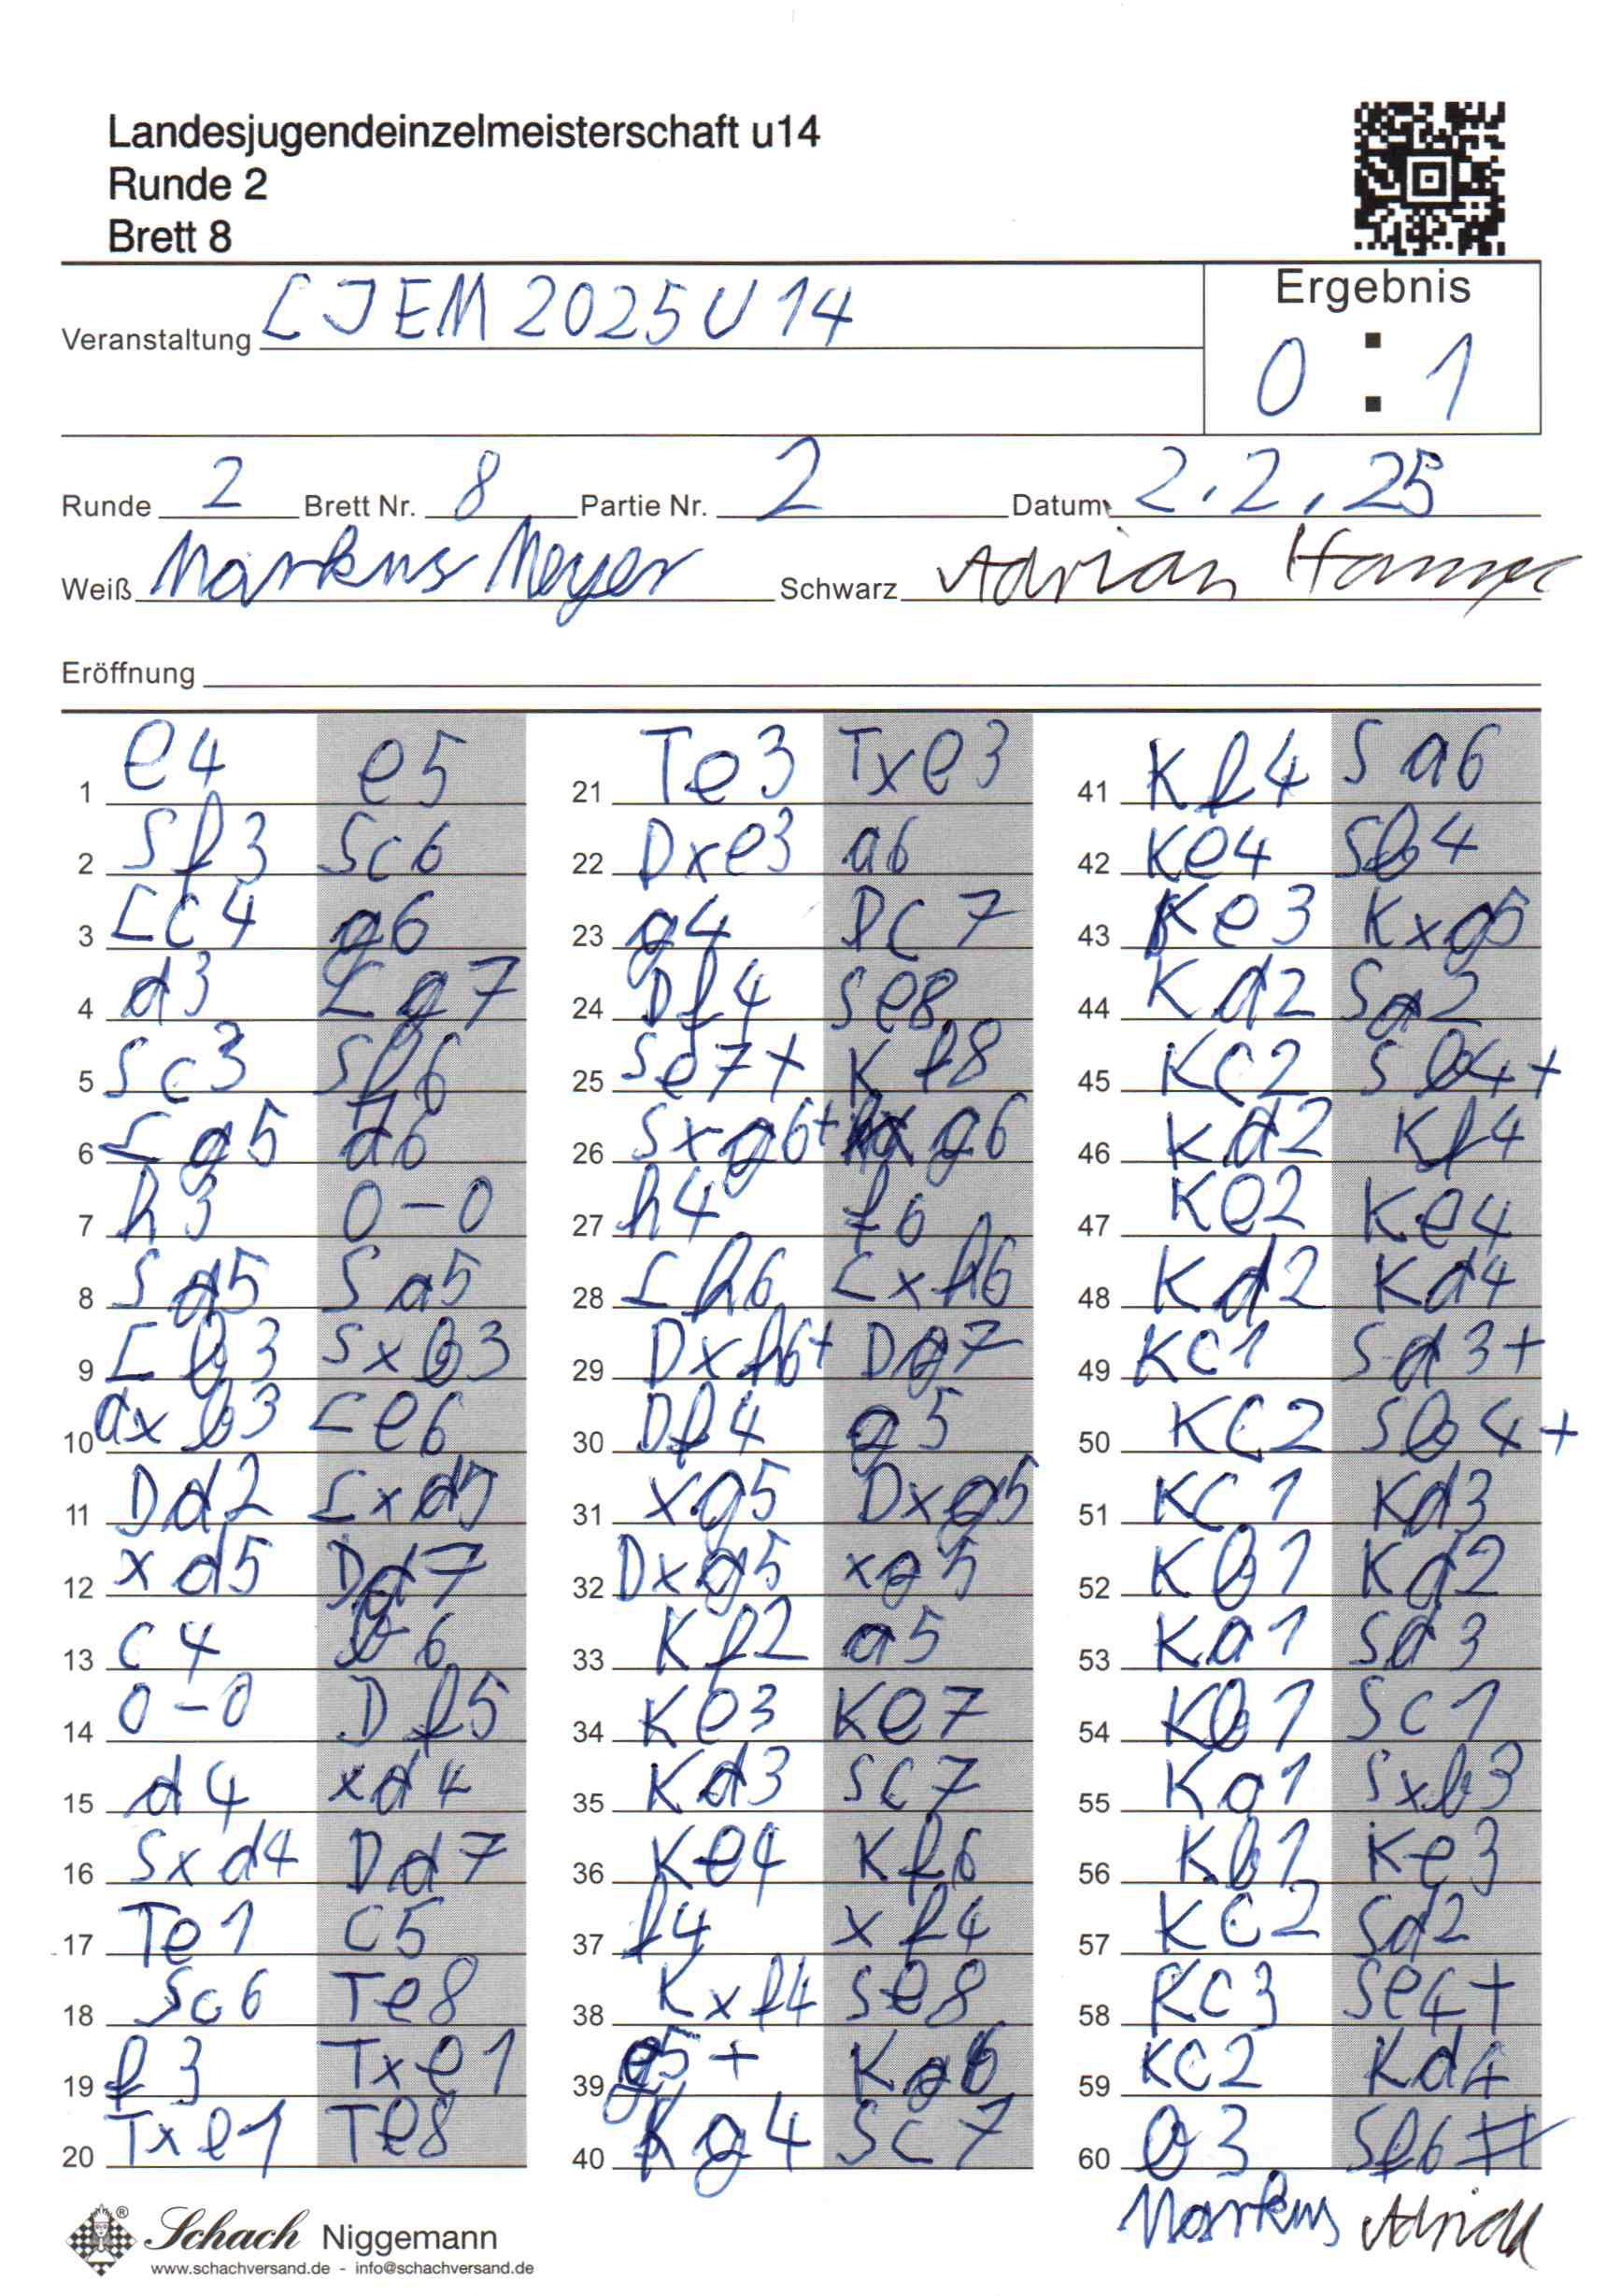 Landesjugendeinzelmeisterschaft u14
Runde 2
Brett 8
Veranstaltung LJEM 2025 U14
Ergebnis
0 : 1
Runde 2 Brett Nr. 8 Partie Nr. 2 Datum 2.2.25
Weiß Markus Meyer Schwarz Adrian
Eröffnung
1 e4 e5
2 Sf3 Sc6
3 Lc4 g6
4 d3 Lg7
5 Sc3 Sf6
6 Lg5 d6
7 h3 0-0
8 Sd5 Sa5
9 Lb3 Sxb3
10 axb3 Le6
11 Dd2 Lxd5
12 xd5 Dd7
13 c4 b6
14 0-0 Df5
15 d4 xd4
16 Sxd4 Dd7
17 Te1 c5
18 Sc6 Te8
19 f3 Txe1
20 Txe1 Te8
21 Te3 Txe3
22 Dxe3 a6
23 g4 Dc7
24 Df4 Se8
25 Se7+ Kf8
26 Sxg6+ hxg6
27 h4 f6
28 Lh6 Lxh6
29 Dxh6+ Dg7
30 Df4 g5
31 xg5 Dxg5
32 Dxg5 xg5
33 Kf2 a5
34 Ke3 Ke7
35 Kd3 Sc7
36 Ke4 Kf6
37 f4 xf4
38 Kxf4 Se8
39 g5+ Kg6
40 Kg4 Sc7
41 Kf4 Sa6
42 Ke4 Sb4
43 Ke3 Kxg5
44 Kd2 Sa2
45 Kc2 Sb4+
46 Kd2 Kf4
47 Ke2 Ke4
48 Kd2 Kd4
49 Kc1 Sd3+
50 Kc2 Sb4+
51 Kc1 Kd3
52 Kb1 Kd2
53 Ka1 Sd3
54 Kb1 Sc1
55 Ka1 Sxb3
56 Kb1 Ke3
57 Kc2 Sd2
58 Kc3 Se4+
59 Kc2 Kd4
60 b3 Sf6#
Markus Adrian
Schach Niggemann
www.schachversand.de - info@schachversand.de